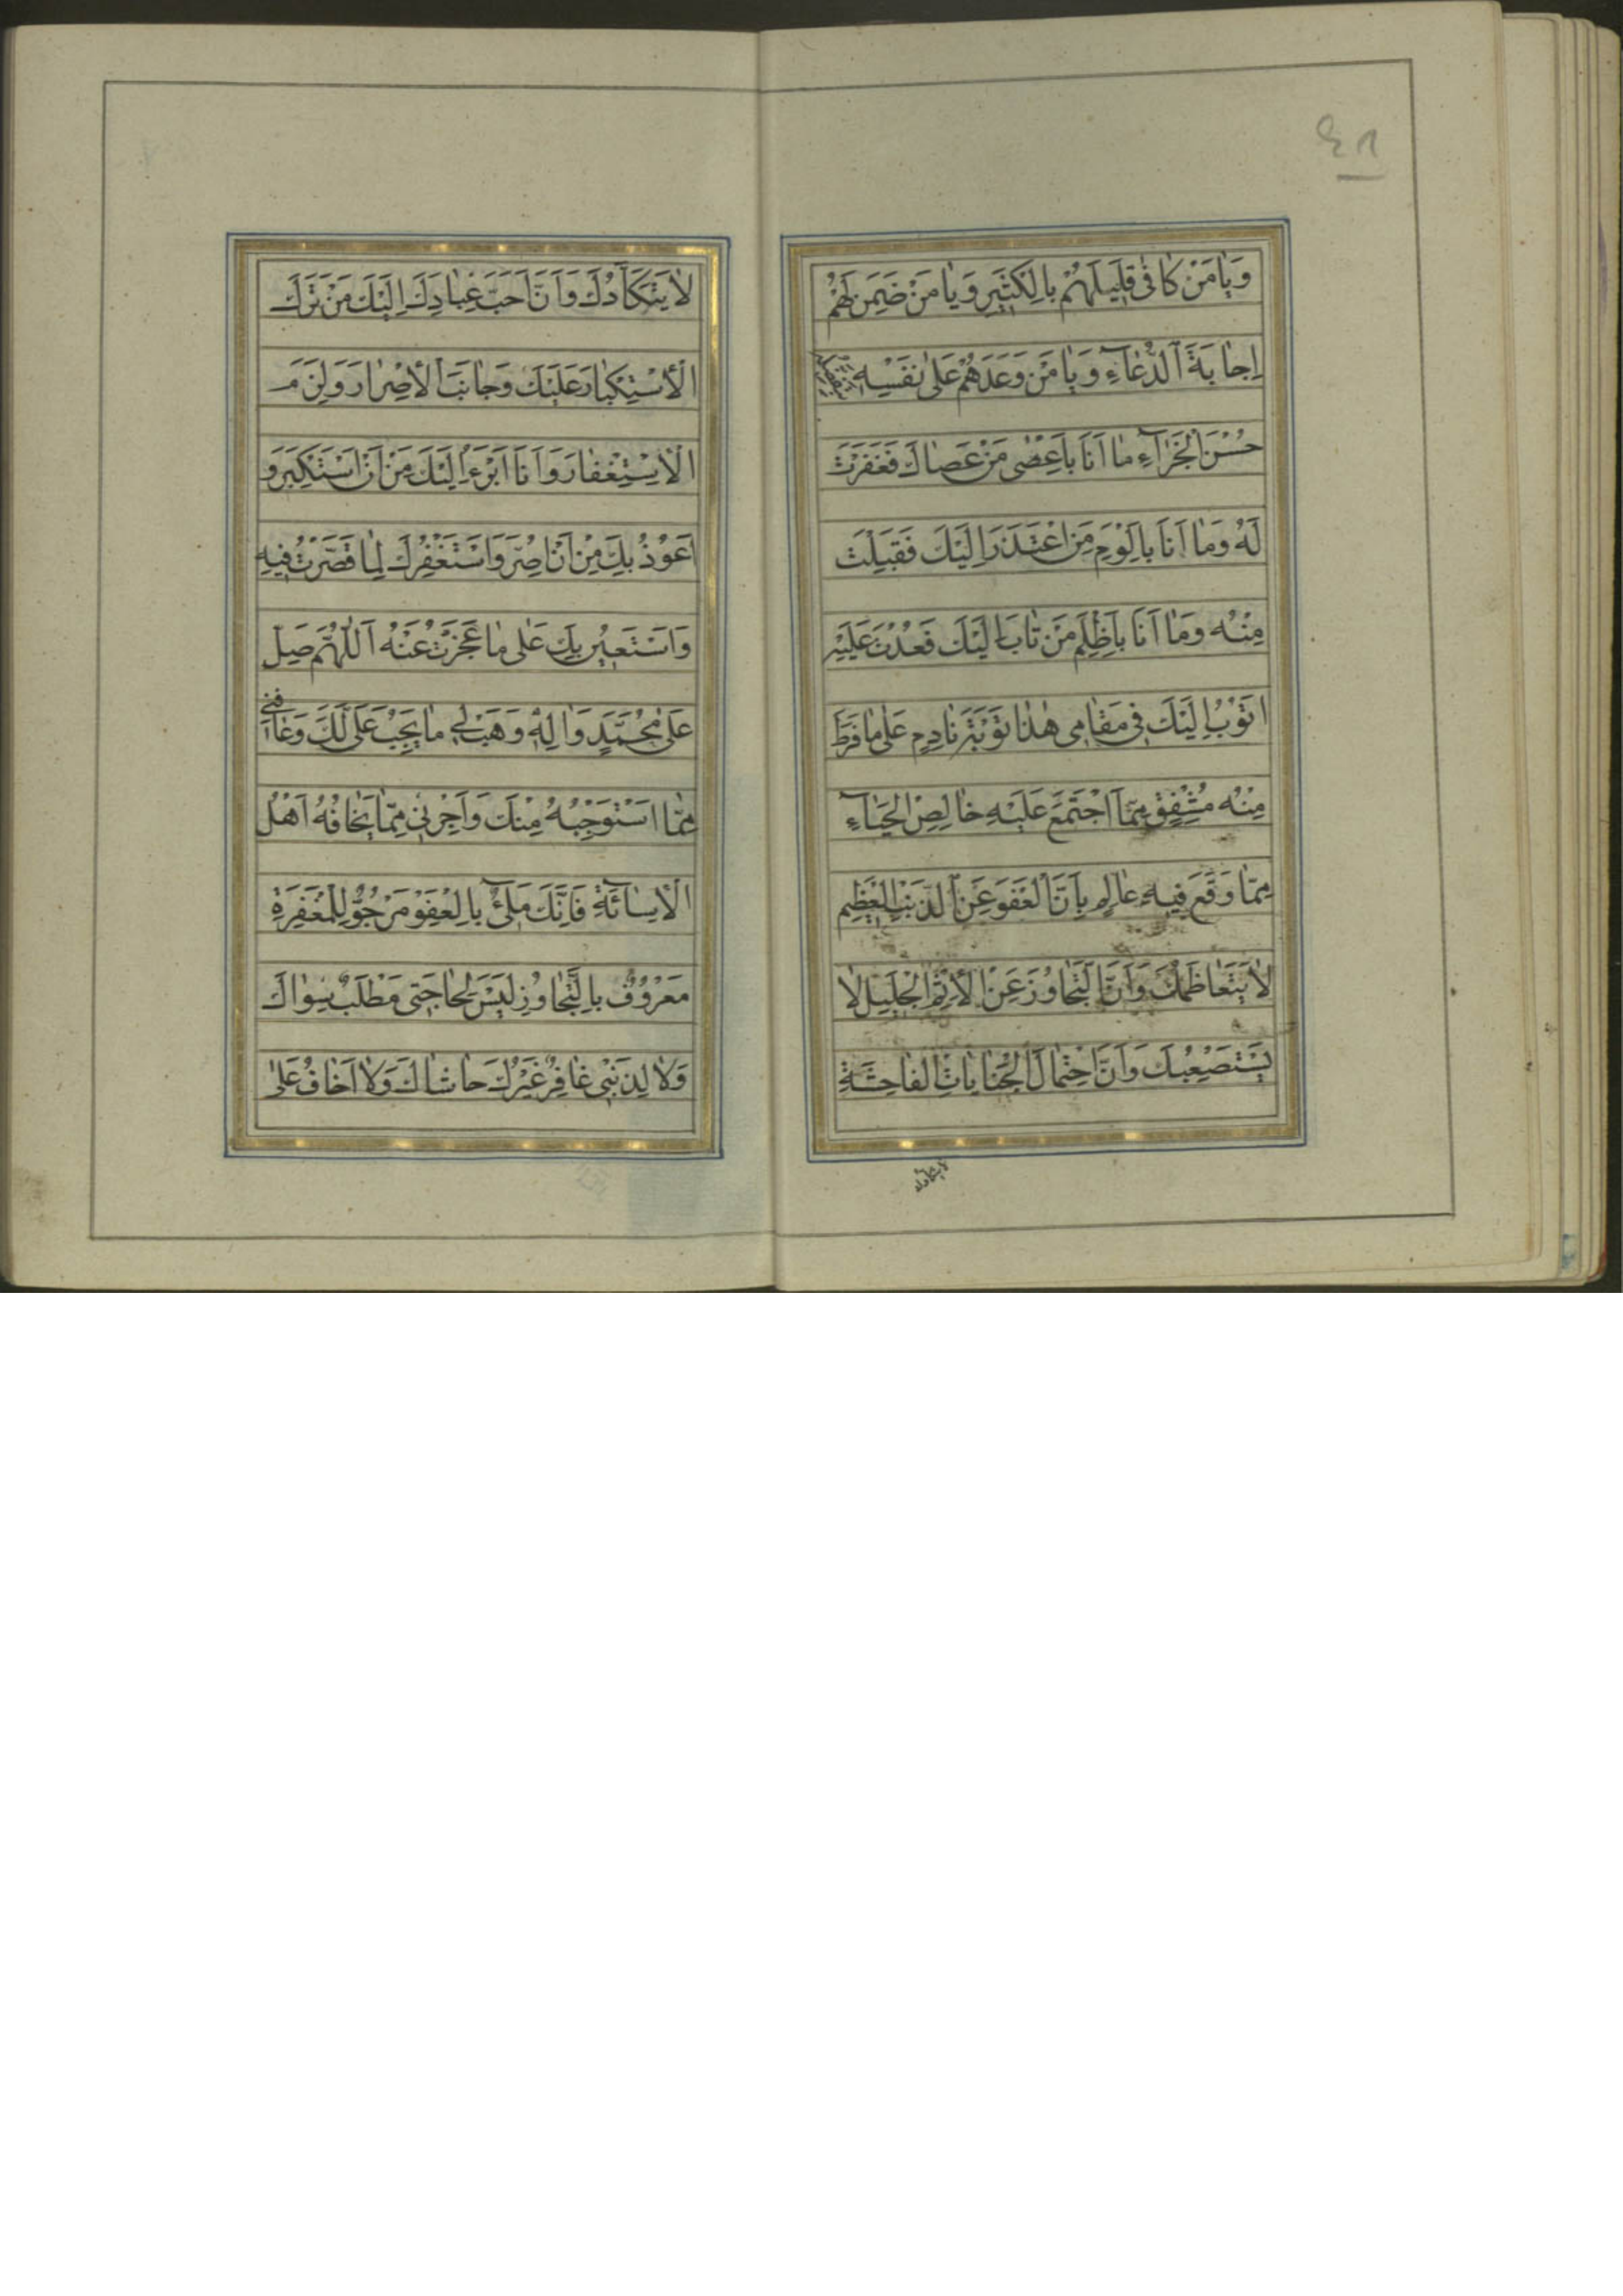 ٤١
وَيا مَنْ كافى قَليلَهُمْ بِالْكَثيرِ وَيا مَنْ ضَمِنَ لَهُمْ
اِجابَةَ الدُّعاءِ وَيا مَنْ وَعَدَهُمْ عَلى نَفْسِه بِتَفَضُّلِه
حُسْنَ الْجَزآءِ ما اَنَا بِاَعْصى مَنْ عَصاكَ فَغَفَرْتَ
لَهُ وَما اَنَا بِاَلْوَمِ مَنِ اعْتَذَرَ اِلَيْكَ فَقَبِلْتَ
مِنْهُ وَما اَنَا بِاَظْلَمِ مَنْ تابَ اِلَيْكَ فَعُدْتَ عَلَيْهِ
اَتُوْبُ اِلَيْكَ فى مَقامى هٰذا تَوْبَةَ نادِمٍ عَلى ما فَرَطَ
مِنْهُ مُشْفِقٍ مِمَّا اجْتَمَعَ عَلَيْهِ خالِصِ الْحَيآءِ
مِمّا وَقَعَ فيهِ عالِمٍ بِاَنَّ الْعَفْوَ عَنِ الذَّنْبِ الْعَظيمِ
لا يَتَعاظَمُكَ وَاَنَّ التَّجاوُزَ عَنِ الْاِثْمِ الْجَليلِ لا
يَسْتَصْعِبُكَ وَاَنَّ احْتِمالَ الْجِناياتِ الْفاحِشَةِ
لا يتكأدك
لا يَتَكَأَّدُكَ وَاَنَّ اَحَبَّ عِبادِكَ اِلَيْكَ مَنْ تَرَكَ
الْاِسْتِكْبارَ عَلَيْكَ وَجانَبَ الْاِصْرارَ وَلَزِمَ
الْاِسْتِغْفارَ وَاَنَا اَبْرَءُ اِلَيْكَ مِنْ اَنْ اَسْتَكْبِرَ وَ
اَعُوْذُ بِكَ مِنْ اَنْ اُصِرَّ وَاَسْتَغْفِرُكَ لِما قَصَّرْتُ فيهِ
وَاَسْتَعينُ بِكَ عَلى ما عَجَزْتُ عَنْهُ اَللّٰهُمَّ صَلِّ
عَلى مُحَمَّدٍ وَاٰلِه وَهَبْ لى ما يَجِبُ عَلَىَّ لَكَ وَعافِنى
مِمّا اَسْتَوْجِبُهُ مِنْكَ وَاَجِرْنى مِمّا يَخافُهُ اَهْلُ
الْاِسآئَةِ فَاِنَّكَ مَلِىٌّ بِالْعَفْوِ مَرْجُوٌّ لِلْمَغْفِرَةِ
مَعْرُوْفٌ بِالتَّجاوُزِ لَيْسَ لِحاجَتى مَطْلَبٌ سِواكَ
وَلا لِذَنْبى غافِرٌ غَيْرُكَ حاشاكَ وَلا اَخافُ عَلى